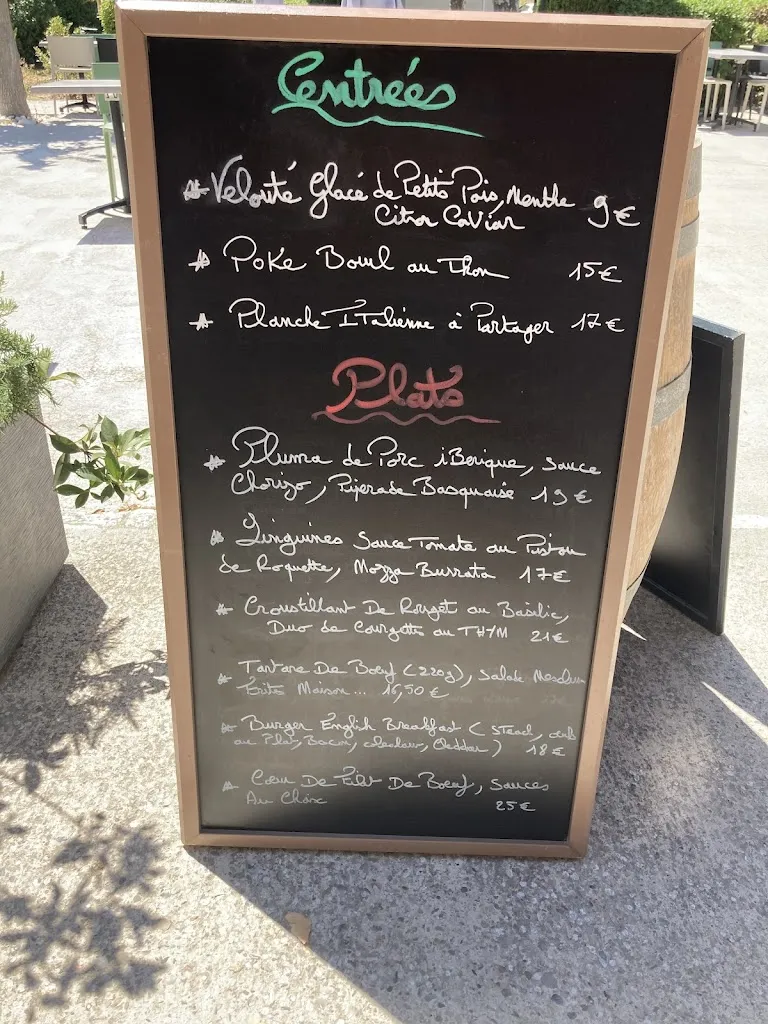 Entrées
* Velouté Glacé de Petits Pois, Menthe 9€
Citron Caviar
* Poke Bowl au Thon 15€
* Planche ITalienne à Partager 17€
Plats
* Pluma de Porc iBerique, sauce
Chorizo, Piperade Basquaise 19€
* Linguines Sauce Tomate au Pistou
de Roquette, Mozza Burrata 17€
* Croustillant De Rouget au Basilic,
Duo de Courgettes au THYM 21€
* Tartare De Boeuf (220g), Salade Mesclun
Frites Maison... 16,50€
* Burger English Breakfast (steack, œufs
au Plat, Bacon, Cheddar) 18€
* Coeur De Filet De Boeuf, Sauces
Au Choix 25€